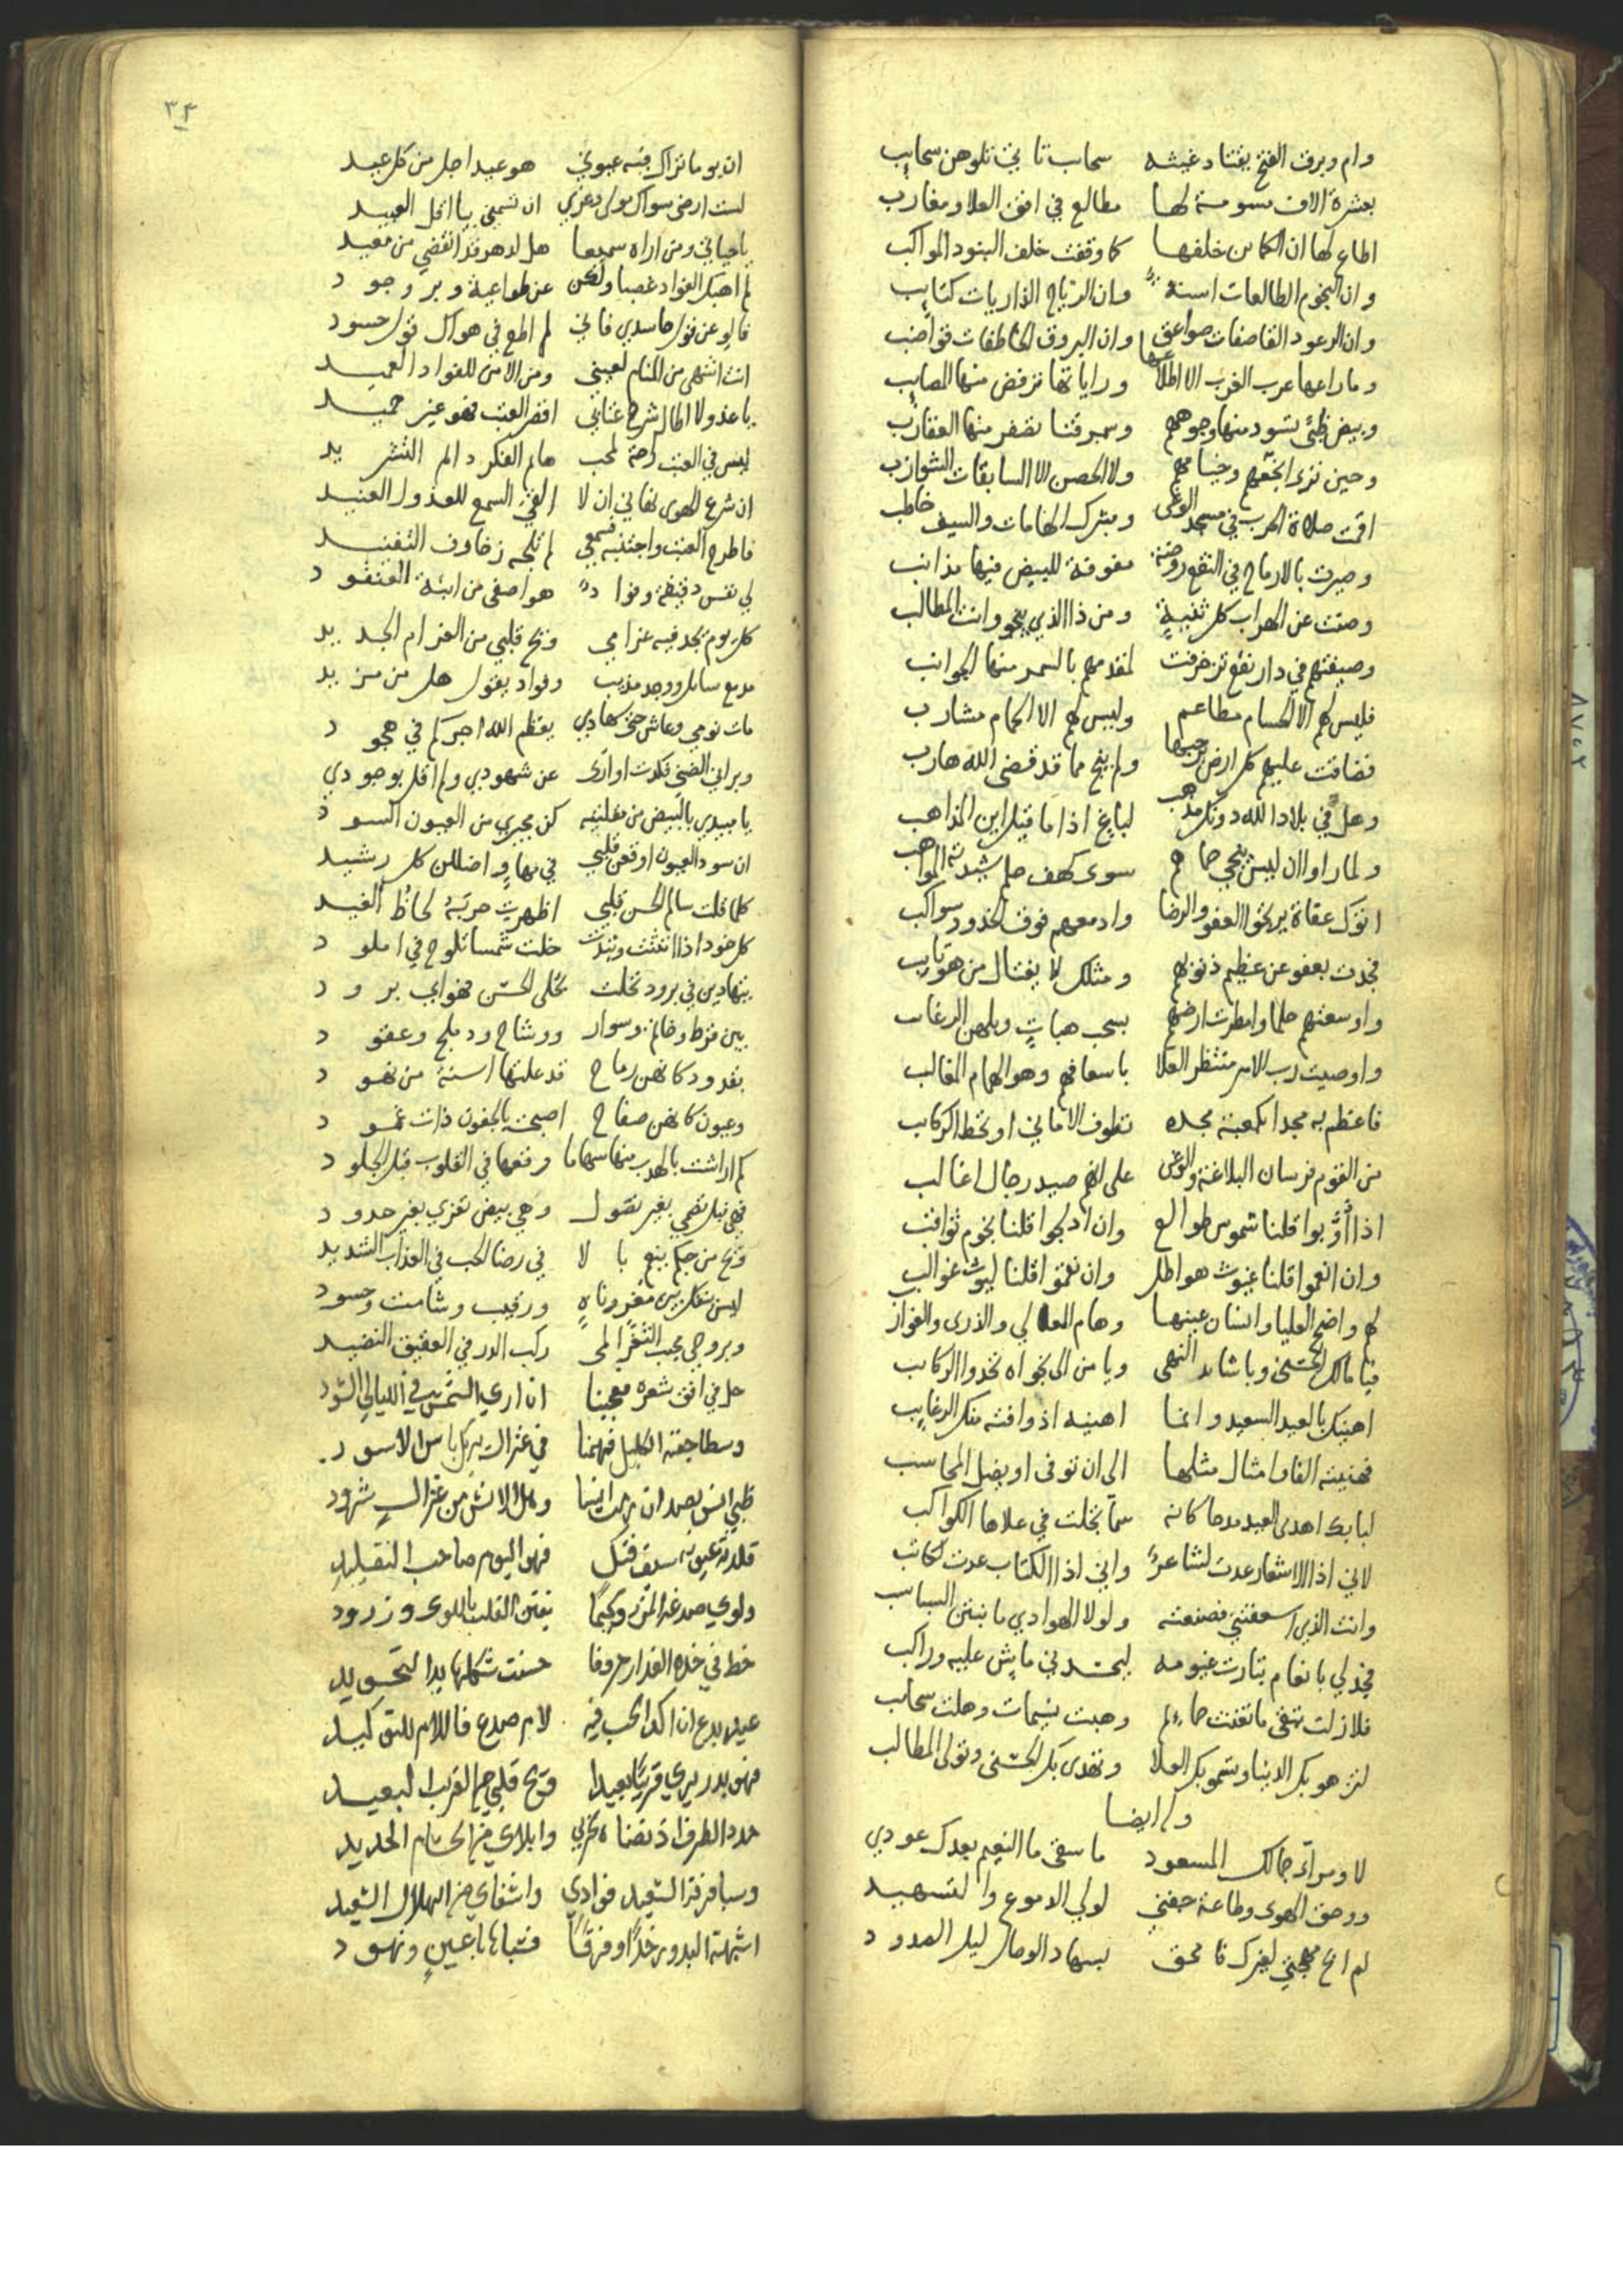 وام وبرق الفتح يقتاد غيثه سحاب تاني تلوهن سحايب
بعشرة الاف مسومة لها مطالع في افق العلا ومغارب
اطاع لها ان الكما من خلفها كما وقفت خلف البنود المواكب
وان النجوم الطالعات اسنة وان الرياح الذاريات كتايب
وان الرعود القاصفات صواعق وان البروق الخاطفات قواضب
وما راعها عرب الغرب الا اطلاعها وراياتها ترفض منها المصايب
وبيض ظبى تسود منها وجوههم وسمر قنا تصفر منها العقارب
وحين ترى الخيم وخيامهم ولا الحصن الا السابقات الشوازب
اقمت صلاة الحرب في مسجد الوغى ومنبرك الهامات والسيف خاطب
وصيرت بالارماح في النقع روضة مفوفة للبيض فيها مذانب
وصنت عن الهراب كل ثنية ومن ذا الذي ينجو وانت المطالب
وصيفتهم في دار نقع تزخرفت لمقدمهم بالسمر منها الجوانب
فليس لهم الا الحسام مطاعم وليس لهم الا الحمام مشارب
فضاقت عليهم كل ارض برحبها ولم ينج مما قد قضى الله هارب
وهل في بلاد الله دونك مذهب لباغ اذا ما قيل اين المذاهب
ولما راوا ان ليس ينجي حماهم سوى كهف حلم شيدته المواهب
اتوك عفاة يرتجوا العفو والرضا وادمعهم فوق الخدود سواكب
فجدت بعفو عن عظيم ذنوبهم ومثلك لا يغتال من هو تايب
واوسعتهم حلما وامطرت ارضهم بسحب هبات وبلهن الرغايب
واوصيت رب الامر منتظر العلا باسعافهم وهو الهمام الغالب
فاعظم به مجدا لكعبة مجده تطوف الاماني او تحط الركايب
من القوم فرسان البلاغة والوغى على انهم صيد رجال اغالب
اذا اوبوا قلنا شموس طوالع وان ادلجوا قلنا نجوم ثواقب
وان انعموا قلنا غيوث هواطل وان نقموا قلنا ليوث غوالب
لهم واضح العليا وانسان عينها وهام المعالي والذرى والغوارب
فيا مالك الحسنى ويا شايد النهى ويا من الى نجواه تحدوا الركايب
اهنيك بالعيد السعيد وانما اهنيه اذ وافته منك الرغايب
فهنيته الفا وامثال مثلها الى ان توفى او يضل المحاسب
لبابك اهدى العبد مدحا كانه سما تجلت في علاها الكواكب
لاني اذا الاشعار عدت لشاعر واني اذا الكتاب عدت لكاتب
وانت الذي اسعفتني فصنعته ولولا الهوادي ما تبنن السباسب
فجد لي بانعام يتارت غيومه ليحسدني ماش عليه وراكب
فلا زلت تبقى ما تغنت حمايم وهبت نسيمات وهلت سحايب
لتزهو بك الدنيا وتسمو بك العلا وتفدى بك الحسنى وتولى المطالب
وله ايضا
لا ومرآة جمالك المسعود ما سقى ما النعيم بعدك عودي
ووحق الهوى وطاعة جفني لولي الدموع والتسهيد
لم اع مهجتي لغيرك فامحق بسهاد الوصال ليل الصدود
٣٤
ان يوما نراك فيه عيوني هو عيد اجل من كل عيد
لست ارضى سواك مولى دعزي ان تسمني يا اقل العبيد
يا حياتي ومن اراه سميعا هل لدهر قد انقضى من معيد
لم اهبك الفؤاد غصبا ولكن عن طواعية وبر وجود
فاله عن قول حاسدي فاني لم اطع في هواك قول حسود
انت اشهى من المنام لعيني ومن الامن للفواد العميد
يا عذولا اطال شرح عتابي اقصر العتب فهو غير حميد
ليس في العتب راحة لمحب هايم الفكر دايم التشريد
ان شرع الهوى نهاني ان لا القي السمع للعذول العنيد
فاطرح العتب واجتنبه فسمعي لم تلجه زخارف التفنيد
لي نفس دقيقة وفواد هو اصفى من ابنة العنقود
كل يوم تجد فيه غرامي ويح قلبي من الغرام الجديد
مدمع سايل ووجد مذيب وفواد يقول هل من مزيد
مات نومي وعاش حي سهادي يعظم الله اجركم في هجود
وبراني الضنى فكدت اوارى عن شهودي ولم اقل بوجودي
يا مبيدي بالبيض من مقلتيه كن مجيري من العيون السود
ان سود العيون اوقعن قلبي في مهاو اضللن كل رشيد
كلما قلت سالم الحسن قلبي اظهرت حربه لحاظ الغيد
كل خود اذا انثنت وتبدت خلت شمسا تلوح في املود
يتهادين في برود تحلت بحلى الحسن فهو ابي برود
بين قرط وخاتم وسوار ووشاح ودملج وعقود
بقدود كانهن رماح قد علتها اسنة من نهود
وعيون كانهن صفاح اصبحت بالجفون ذات غمود
كم اراشت بالهدب منها سهاما وقعها في القلوب قبل الجلود
فهي نبل تصمي بغير نصول وهي بيض تفري بغير حدود
ويح من حبكم ينعم بالا في رضا الحب في العذاب الشديد
ليس ينفك بين مغر وناه ورقيب وشامت وحسود
وبروحي محجب الثغر المى ركب الدر في العقيق النضيد
حل في افق شعره معجبنا ان ارى الشمس في الليالي السود
وسطا جفنه الكليل فهمنا في غزال يريك باس الاسود
ظبي انس يصد ان رمت انسا وهل الانس من غزال شرود
قلدته عيونه سيف فتك فهو اليوم صاحب التقليد
ولوي صدغه المزر وكيما يفتن القلب باللوى وزرود
خط في خده العذار حروفا حسنت شكلها يد التجويد
عيل بدع ان اكد الحب فيه لام صدغ فاللام للتوكيد
فهو بدر يرى قريبا بعيدا ويح قلبي من القريب البعيد
حدد الطرف اذ نضاه لحربي وا بلاي من الحسام الحديد
وسبا فرقه السعيد فوادي واشقاي من الهلال السعيد
اشبهته البدور خدا وفرقا فسباها باعين ونهود